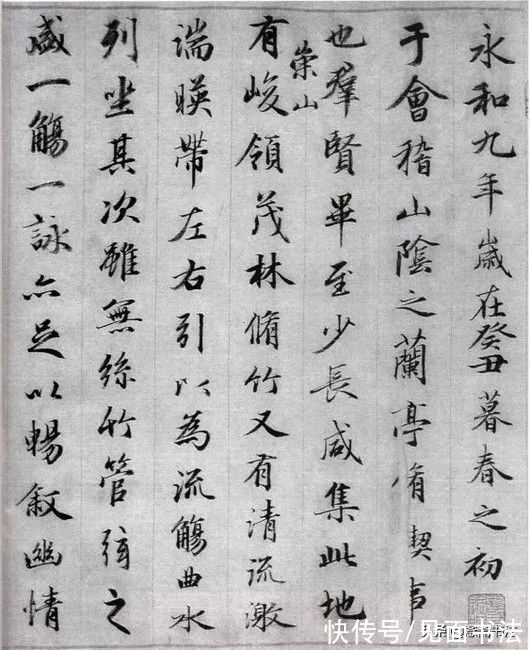 永和九年歲在癸丑暮春之初
于會稽山陰之蘭亭脩禊事
也羣賢畢至少長咸集此地
崇山
有峻領茂林脩竹又有清流激
湍暎帶左右引以為流觴曲水
列坐其次雖無絲竹管弦之
盛一觴一詠亦足以暢敘幽情
快传号/见面书法